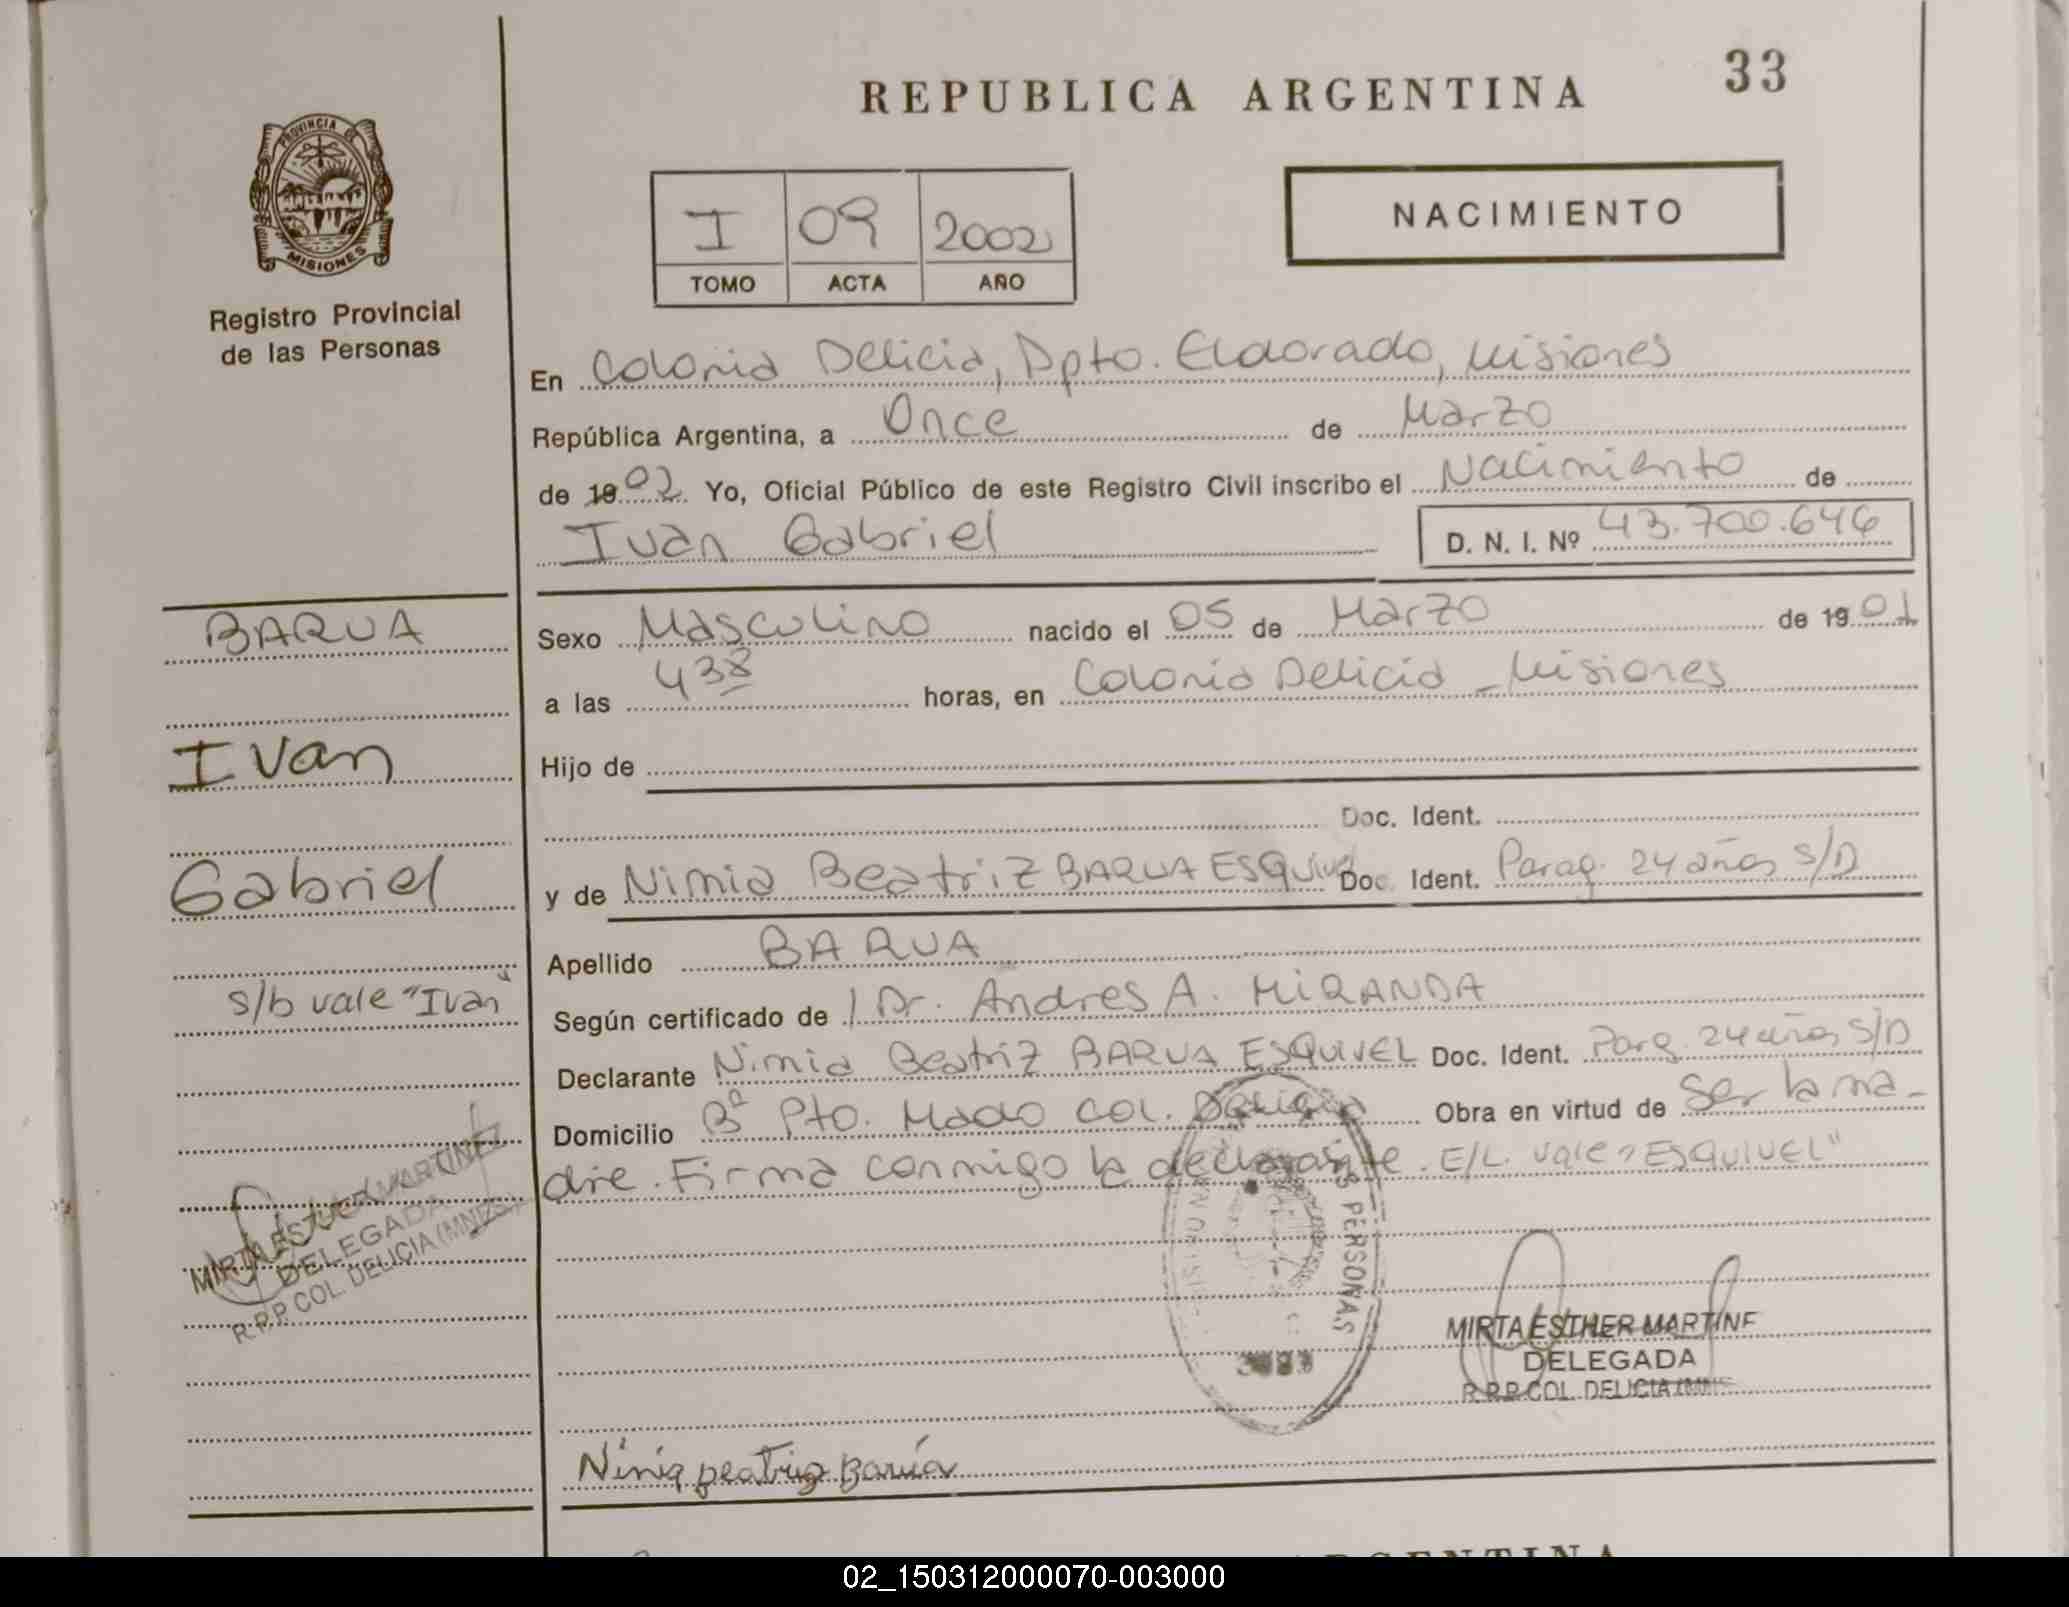 REPUBLICA ARGENTINA
33
PROVINCIA DE
MISIONES
Registro Provincial
de las Personas
I 09 2002
TOMO ACTA AÑO
NACIMIENTO
En Colonia Delicia, Dpto. Eldorado, Misiones
República Argentina, a Once de Marzo
de 19 02 Yo, Oficial Público de este Registro Civil inscribo el Nacimiento de
Ivan Gabriel D. N. I. Nº 43.700.646
BARUA
Ivan
Gabriel
s/b vale "Ivan"
MIRTA ESTHER MARTINEZ
DELEGADA
R.P.P. COL. DELICIA (MNES.)
Sexo Masculino nacido el 05 de Marzo de 19 01
a las 438 horas, en Colonia Delicia - Misiones
Hijo de
Doc. Ident.
y de Nimia Beatriz BARUA ESQUIVEL Doc. Ident. Parag. 24 años S/D
Apellido BARUA
Según certificado de Dr. Andres A. MIRANDA
Declarante Nimia Beatriz BARUA ESQUIVEL Doc. Ident. Parg. 24 años S/D
Domicilio Bº Pto. Mado Col. Delicia Obra en virtud de Ser la ma-
dre. Firma conmigo la declarante. E/L. vale "ESQUIVEL"
S PERSONAS
MIRTA ESTHER MARTINE
DELEGADA
R.P.P. COL. DELICIA (MNES
Nimia beatriz Barúa
ARGENTINA
02_150312000070-003000